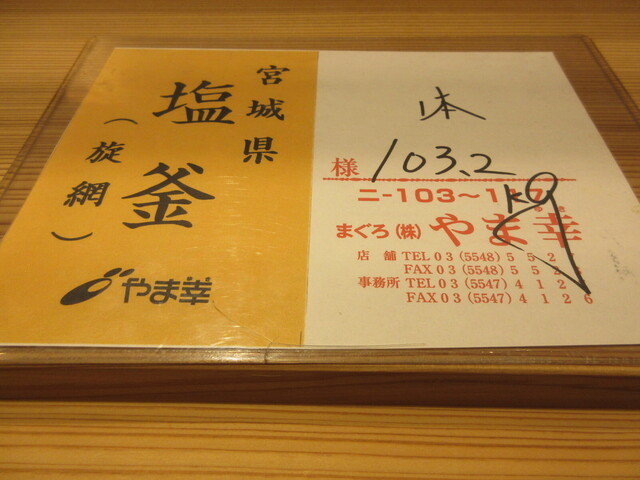 宮城県
塩釜
(旋網)
やま幸
1本
103.2
kg
様
ニ-103～117
まぐろ(株)やま幸
ゆき
店舗 TEL 03 (5548) 5 5 2
FAX 03 (5548) 5 5 2
事務所 TEL 03 (5547) 4 1 2 6
FAX 03 (5547) 4 1 2 6